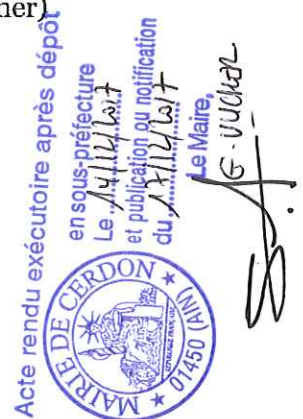 ner)
Acte rendu exécutoire après dépôt
en sous-préfecture
Le 14/12/2017
et publication ou notification
du 17/12/2017
Le Maire,
MAIRIE DE CERDON
01450 (AIN)
RÉPUBLIQUE FRANÇAISE